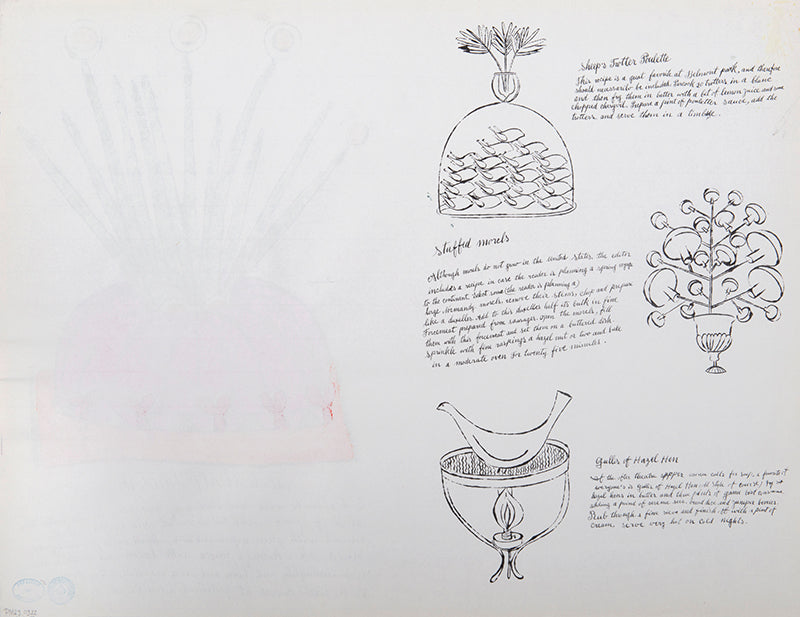 Sheeps Trotter Poulette
This recipe is a great favorite at Belmont park, and therefore
should necessarily be included. Poach 20 trotters in a blanc
and then fry them in butter with a bit of lemon juice and some
chopped chervil. Prepare a point of poulette sauce, add the
trotters and serve them in a timbale.
Stuffed morels
Although morels do not grow in the United States, the editor
includes a recipe in case the reader is planning a spring voyage
to the continent. Select some (the reader is planning a)
large, Normandy morels remove their stems, chop and prepare
like a duxelles. Add to this duxelles half its bulk in fine
Forcemeat prepared from sausages. Open the morels, fill
them with this forcemeat and set them on a buttered dish.
Sprinkle with fine raspings a hazel nut or two and bake
in a moderate oven for twenty five minutes.
Gullis of Hazel Hen
At the after theatre supper when calls for soup, a favorite of
everyone's is Gullis of Hazel Hen. Fry
hazel hens in butter and
adding a point of and juniper berries.
Rub through a fine sieve and finish it with a pint of
cream serve very hot on cold nights.